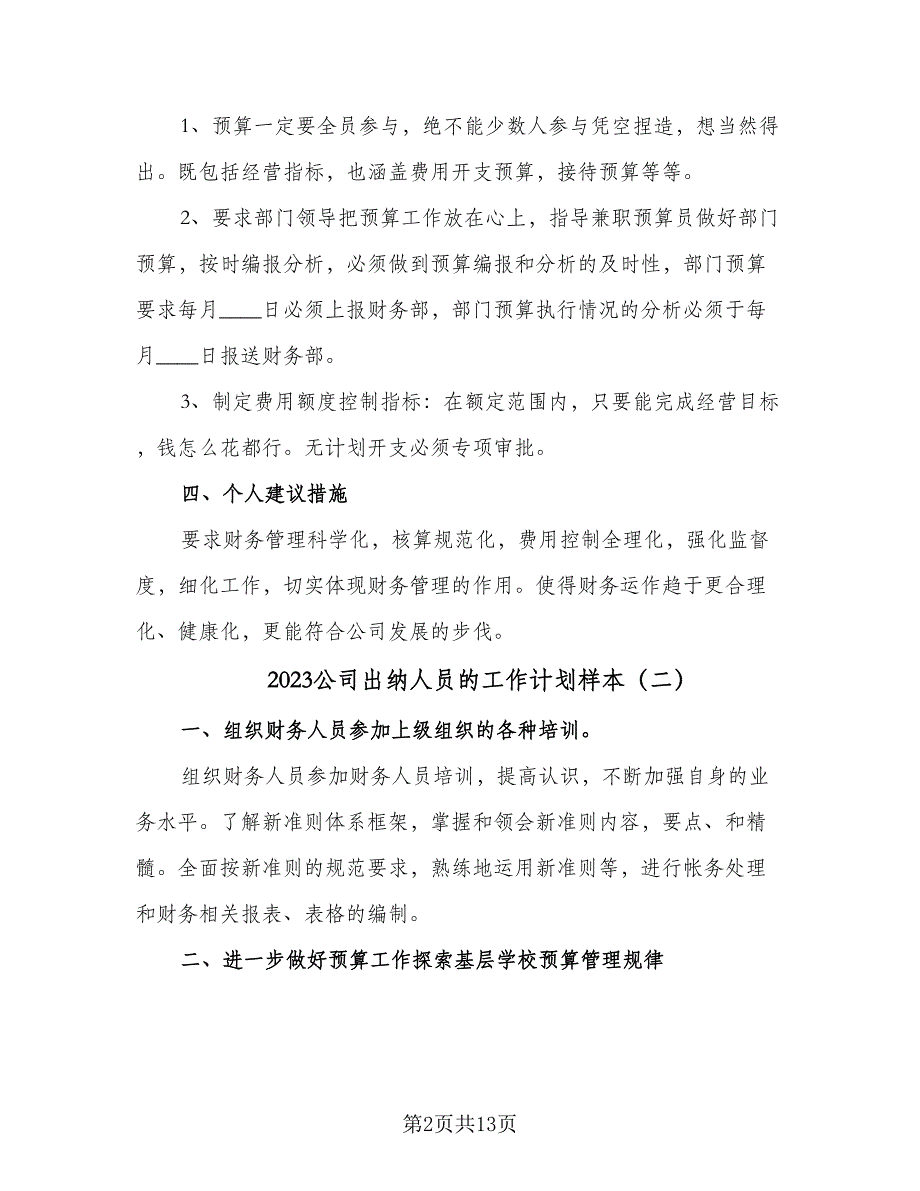 1、预算一定要全员参与，绝不能少数人参与凭空捏造，想当然得
出。既包括经营指标，也涵盖费用开支预算，接待预算等等。
2、要求部门领导把预算工作放在心上，指导兼职预算员做好部门
预算，按时编报分析，必须做到预算编报和分析的及时性，部门预算
要求每月____日必须上报财务部，部门预算执行情况的分析必须于每
月____日报送财务部。
3、制定费用额度控制指标：在额定范围内，只要能完成经营目标
，钱怎么花都行。无计划开支必须专项审批。
四、个人建议措施
要求财务管理科学化，核算规范化，费用控制全理化，强化监督
度，细化工作，切实体现财务管理的作用。使得财务运作趋于更合理
化、健康化，更能符合公司发展的步伐。
2023公司出纳人员的工作计划样本（二）
一、组织财务人员参加上级组织的各种培训。
组织财务人员参加财务人员培训，提高认识，不断加强自身的业
务水平。了解新准则体系框架，掌握和领会新准则内容，要点、和精
髓。全面按新准则的规范要求，熟练地运用新准则等，进行帐务处理
和财务相关报表、表格的编制。
二、进一步做好预算工作探索基层学校预算管理规律
第2页共13页